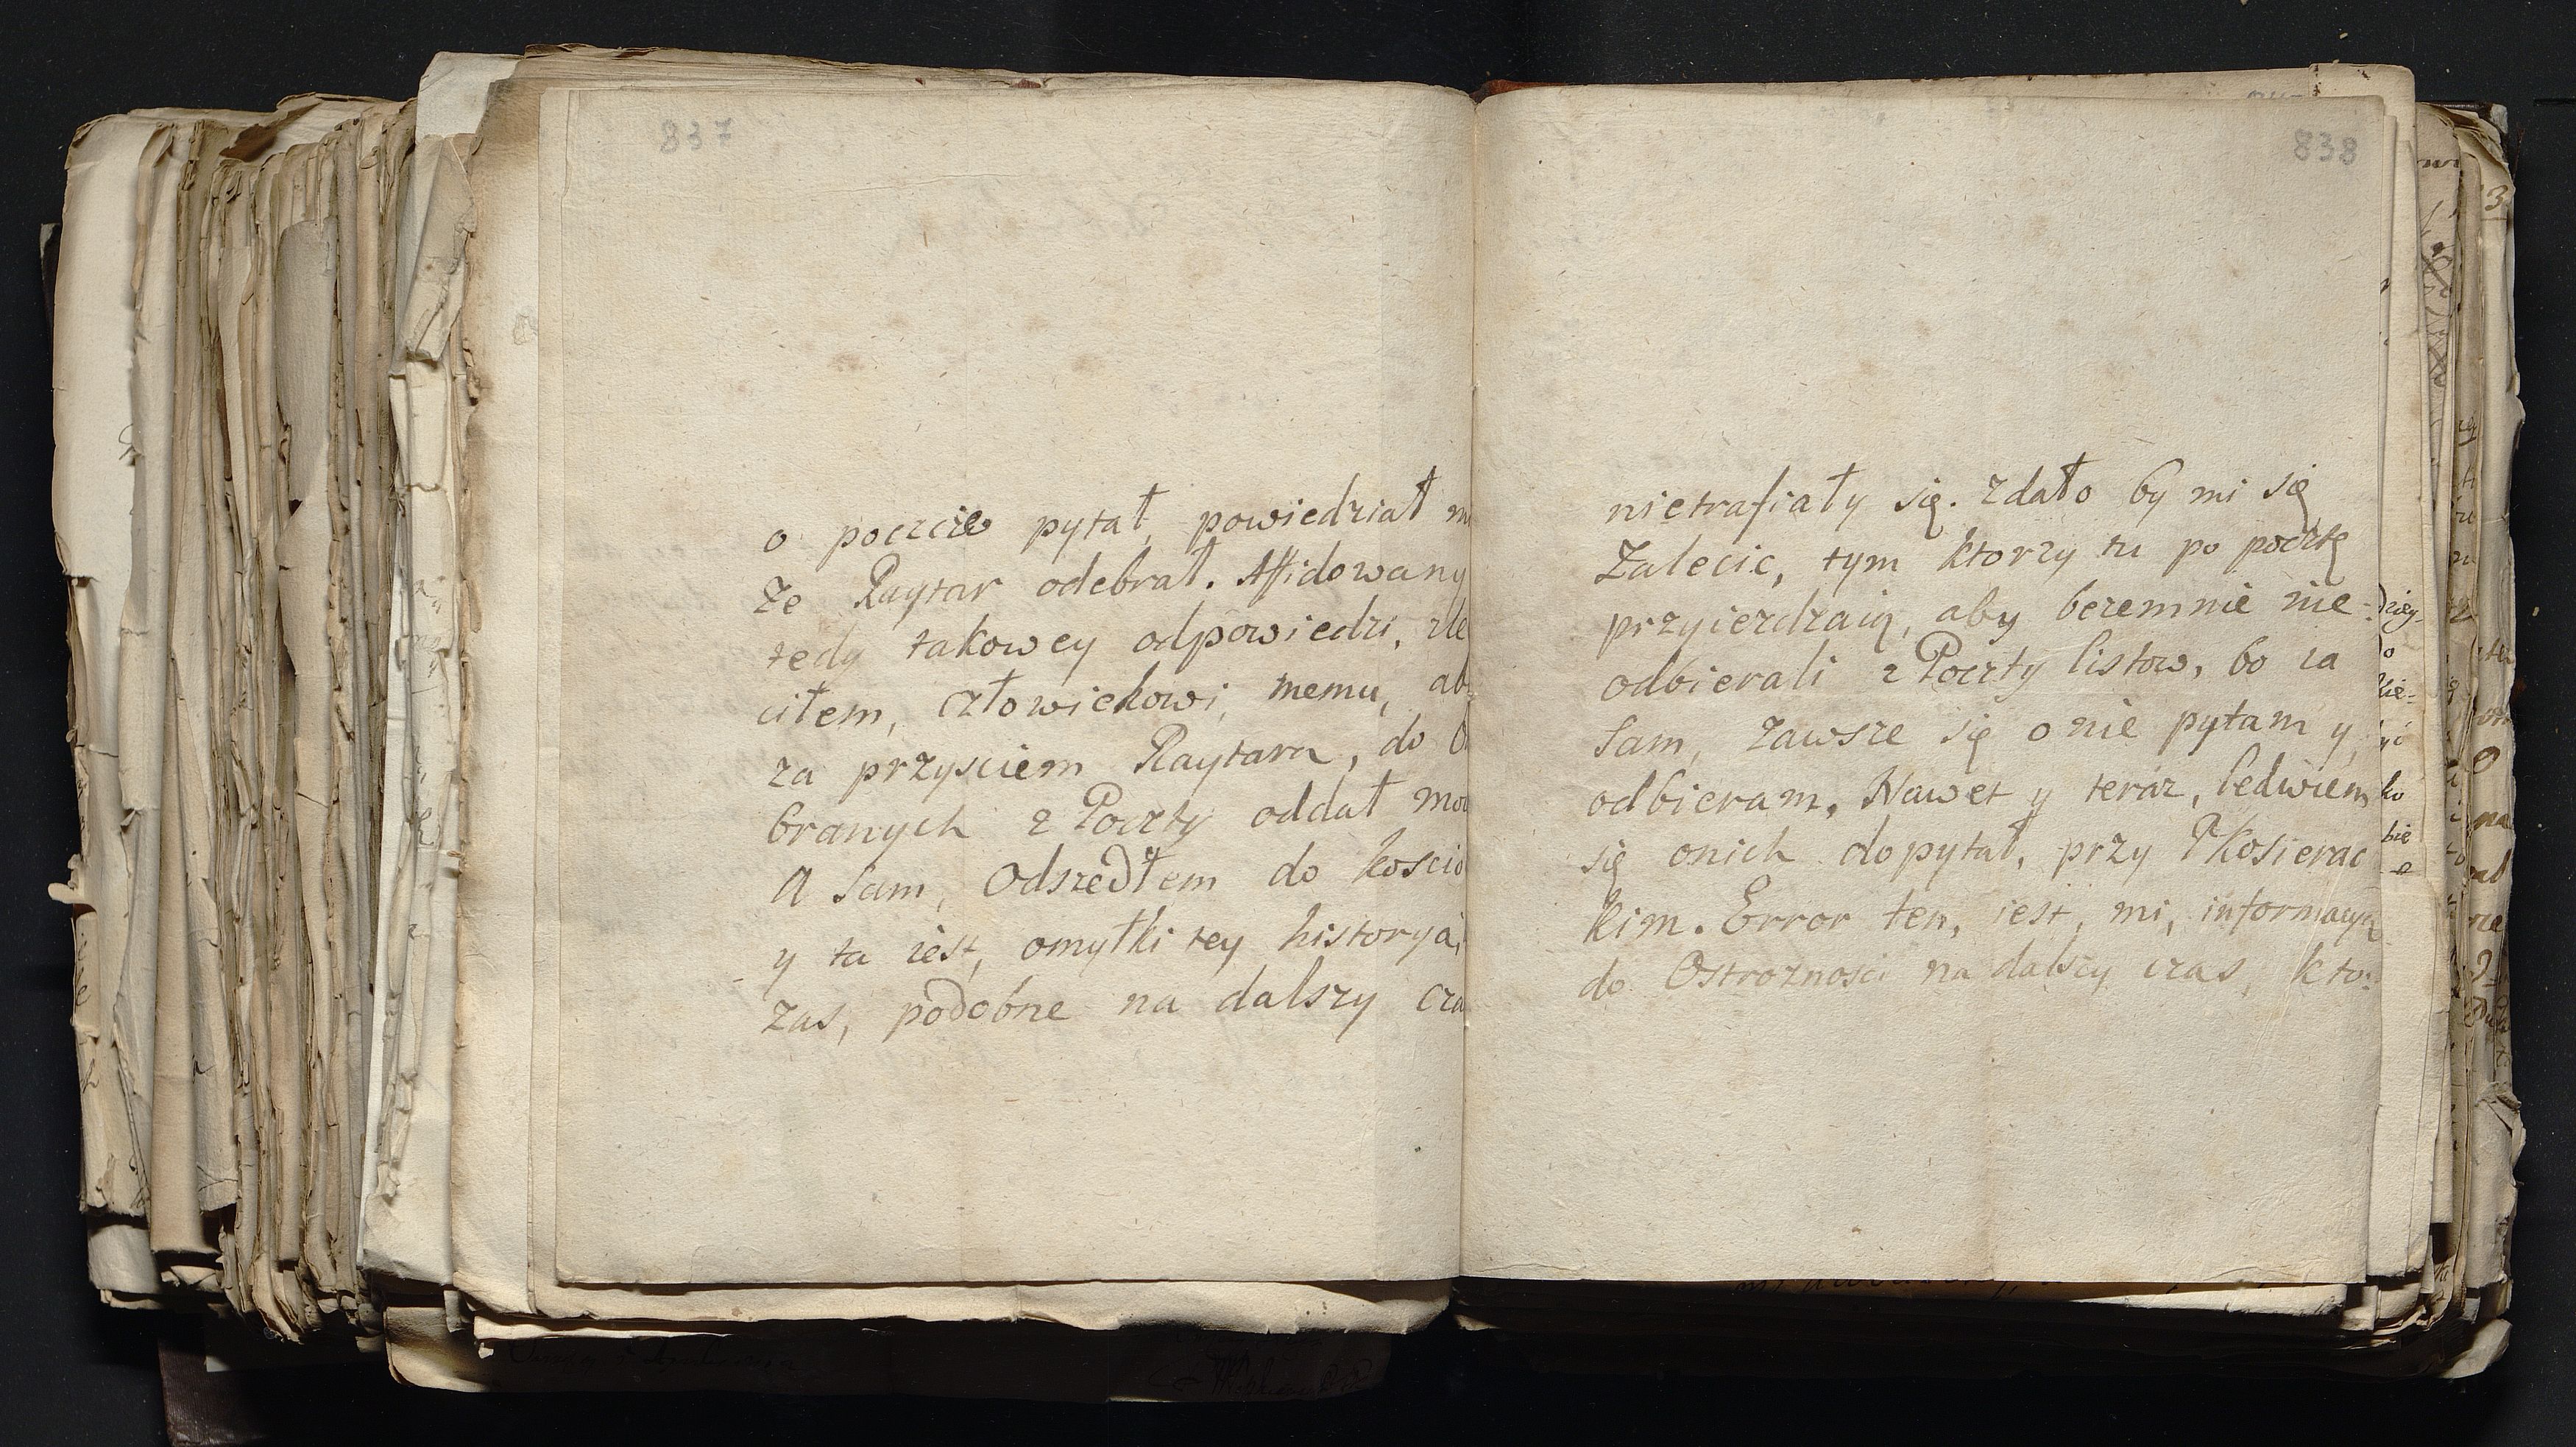 837
o poczcie pytał, powiedział m
że Raytar odebrał. Affidowany
tedy takowey odpowiedzi, zle
ciłem, człowiekowi, memu, ab
za przysciem Raytara, do O
branych z Poczty oddał mo
A sam, Odszedłem do koscio
y ta iest, omyłki tey historya,
zas, podobne na dalszy cza
838
nietrafiały się. Zdało by mi się
Zalecic, tym ktorzy tu po pocztę
przyiezdzaią, aby bezemnie nie-
odbierali z Poczty listow, bo ia
sam, zawsze się o nie pytam y
odbieram, Nawet y teraz, ledwiem
się onich dopytał, przy P Kosierac
kim. Error ten, iest, mi, informacyą
do Ostroznosci na dalszy czas, kto: